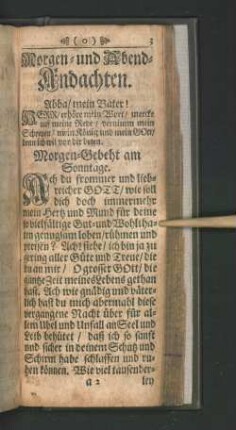 ( o ) 3
Morgen- und Abend-
Andachten.
Abba/ mein Vater!
HERR/ erhöre mein Wort/ mercke
auf meine Rede/ vernimm mein
Schreyen/ mein König und mein GOtt/
denn ich will vor dir beten.
Morgen-Gebeht am
Sonntage.
Ach du frommer und lieb-
reicher GOTT/ wie soll
dich doch immermehr
mein Hertz und Mund für deine
so vielfältige Gut- und Wohltha-
ten genugsam loben/rühmen und
preisen? Ach! siehe/ ich bin ja zu
gering aller Güte und Treue/ die
du an mir/ O grosser GOtt/ die
gantze Zeit meines Lebens gethan
hast. Ach wie gnädig und väter-
lich hast du mich abermahl diese
vergangene Nacht über für al-
lem Ubel und Unfall an Seel und
Leib behütet/ daß ich so sanft
und sicher in deinem Schutz und
Schirm habe schlaffen und ru-
hen können. Wie viel tausender-
a 2 ley